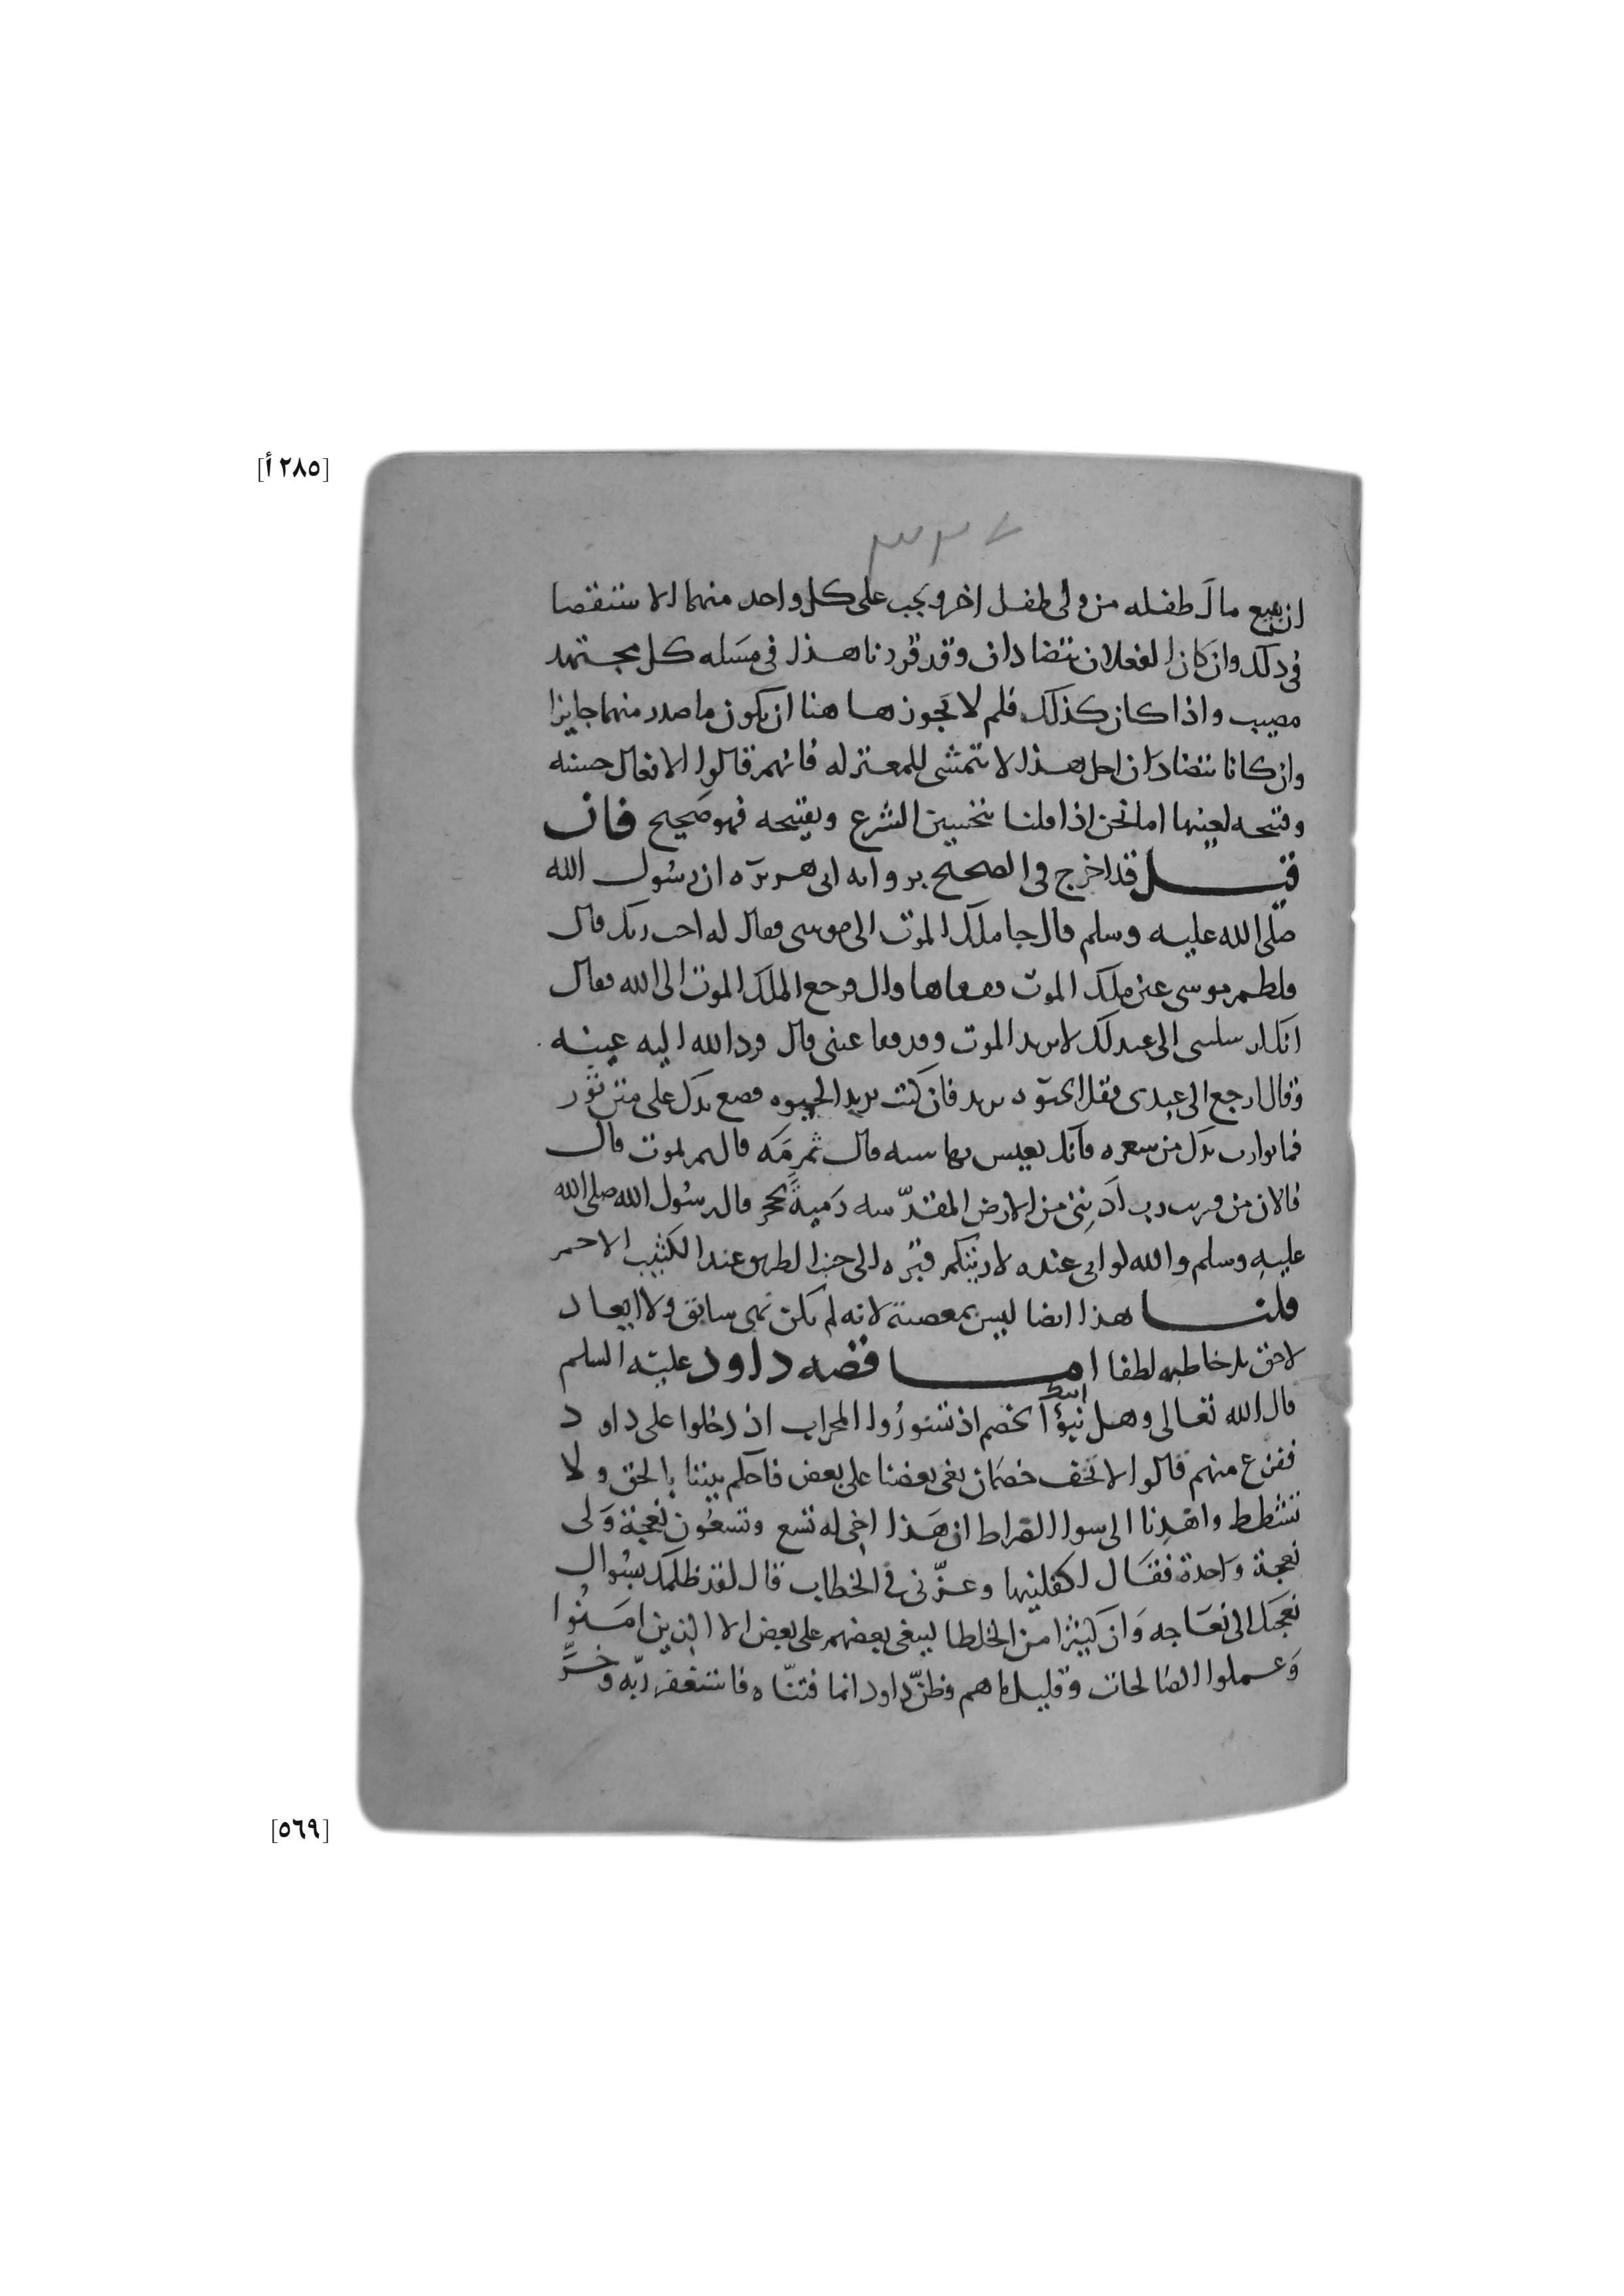 [٢٨٥ أ]
ان يبيع مال طفله من ولى طفل اخر ويجب على كل واحد منهما الاستقصا
فى ذلك وان كان الفعلان يتضادان وقد قررنا هذا فى مسله كل مجتهد
مصيب واذا كان كذلك فلم لا يجوز هاهنا ان يكون ما صدر منهما جايزا
وان كانا يتضادان اجل هذا لا يتمشى للمعتزله فانهم قالوا الافعال حسنه
وقبيحه لعينها اما نحن اذا قلنا بتحسين الشرع وبقبيحه فهو صحيح فان
قيل قد اخرج فى الصحيح بروايه ابى هريرة ان رسول الله
صلى الله عليه وسلم قال جا ملك الموت الى موسى فقال له اجب ربك قال
فلطم موسى عين ملك الموت ففقاها قال فرجع الملك الموت الى الله فقال
انك ارسلتنى الى عبد لك لا يريد الموت وقد فقا عينى قال فرد الله اليه عينه
وقال ارجع الى عبدى فقل الحيوة تريد فان كنت تريد الحيوه فضع يدك على متن ثور
فما توارت يدك من شعره فانك تعيش بها سنه قال ثم مَه قال ثم تموت قال
فالان من قريب رب ادنِنى من الارض المقدّسه رَميةً بحجر قال رسول الله صلى الله
عليه وسلم والله لو انى عنده لاريتكم قبره الى جنب الطريق عند الكثيب الاحمر
قلنا هذا ايضا ليس بمعصية لانه لم يكن نهى سابق ولا ايعاد
لاحق بل خاطبه لطفا اما قصه داود عليه السلم
قال الله تعالى وهل اتيك نبؤا الخصم اذ تسوّرُوا المحراب اذ دخلوا على داود
ففزع منهم قالوا لا تخف خصمان بغى بعضنا على بعض فاحكم بيننا بالحق ولا
تشطط واهدِنا الى سوا الصراط ان هَذا اخى له تسع وتسعُون نعجة وَلى
نعجة وَاحدة فقَال اكفلنيها وعزّنى فى الخطاب قال لقد ظلمك بسُوال
نعجتك الى نعَاجه وَان كثيرًا من الخلطا ليبغى بعضهم على بعض الا الذين امَنُوا
وَعملوا الصَالحات وقليل ما هم وظنّ داود انما فتنّاه فاستغفر ربّه وخرَّ
[٥٦٩]